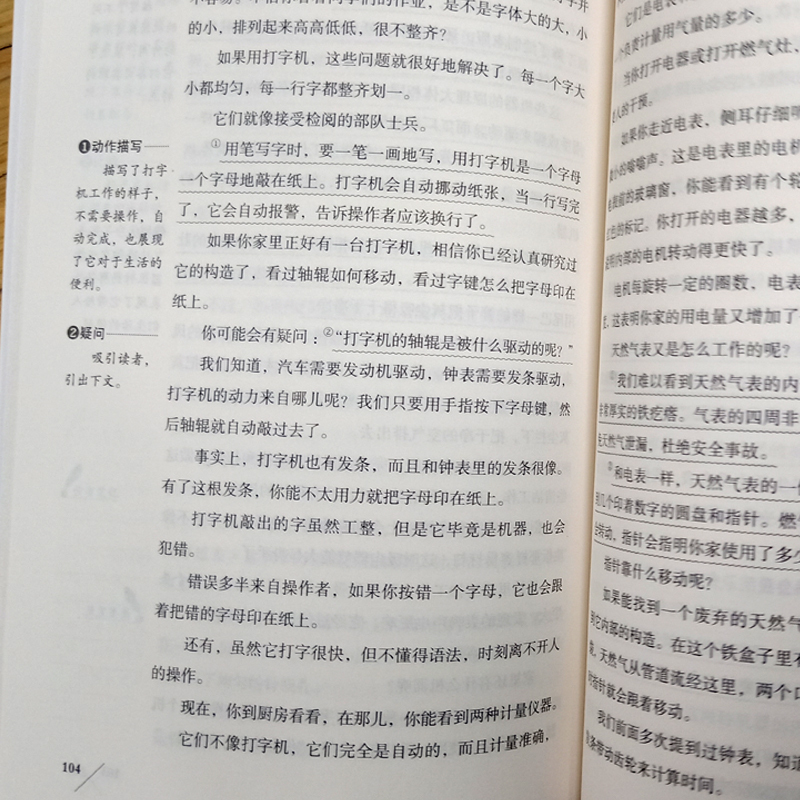 业，是不是字体大的大，小
的小，排列起来高高低低，很不整齐？
如果用打字机，这些问题就很好地解决了。每一个字大
小都均匀，每一行字都整齐划一。
它们就像接受检阅的部队士兵。
①用笔写字时，要一笔一画地写，用打字机是一个字母
一个字母地敲在纸上。打字机会自动挪动纸张，当一行写完
了，它会自动报警，告诉操作者应该换行了。
如果你家里正好有一台打字机，相信你已经认真研究过
它的构造了，看过轴辊如何移动，看过字键怎么把字母印在
纸上。
你可能会有疑问：②“打字机的轴辊是被什么驱动的呢？”
我们知道，汽车需要发动机驱动，钟表需要发条驱动，
打字机的动力来自哪儿呢？我们只要用手指按下字母键，然
后轴辊就自动敲过去了。
事实上，打字机也有发条，而且和钟表里的发条很像。
有了这根发条，你能不太用力就把字母印在纸上。
打字机敲出的字虽然工整，但是它毕竟是机器，也会
犯错。
错误多半来自操作者，如果你按错一个字母，它也会跟
着把错的字母印在纸上。
还有，虽然它打字很快，但不懂得语法，时刻离不开人
的操作。
现在，你到厨房看看，在那儿，你能看到两种计量仪器。
它们不像打字机，它们完全是自动的，而且计量准确，
❶动作描写
描写了打字
机工作的样子，
不需要操作，自
动完成，也展现
了它对于生活的
便利。
❷疑问
吸引读者，
引出下文。
104
它们是电表
负责计量用气量的多少。
当你打开电器或打开燃气灶、
人的干扰。
如果你走近电表、侧耳仔细
的嗡嗡声。这是电表里的电机
的玻璃窗，你能看到有个轮
色的标记。你打开的电器越多、
内部的电机转动得更快了。
电机每旋转一定的圈数，电表
这表明你家的用电量又增加了
天然气表又是怎么工作的呢？
①我们难以看到天然气表的内
非常厚实的铁疙瘩。气表的四周非
天然气泄漏，杜绝安全事故。
②和电表一样，天然气表的一
几个印着数字的圆盘和指针。燃
转动，指针会指明你家使用了多少
指针靠什么移动呢？
如果能找到一个废弃的天然气
到它内部的构造。在这个铁盒子里有
天然气从管道流经这里，两个
指针就会跟着移动。
我们前面多次提到过钟表，知道
条带动齿轮来计算时间。